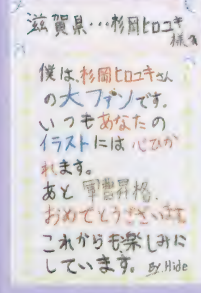 滋賀県・・・杉岡ヒロユキ
様方
僕は、杉岡ヒロユキさん
の大ファンです。
いつもあなたの
イラストには心ひか
れます。
あと軍曹昇格、
おめでとうございます
これからも楽しみに
しています。 By.Hide